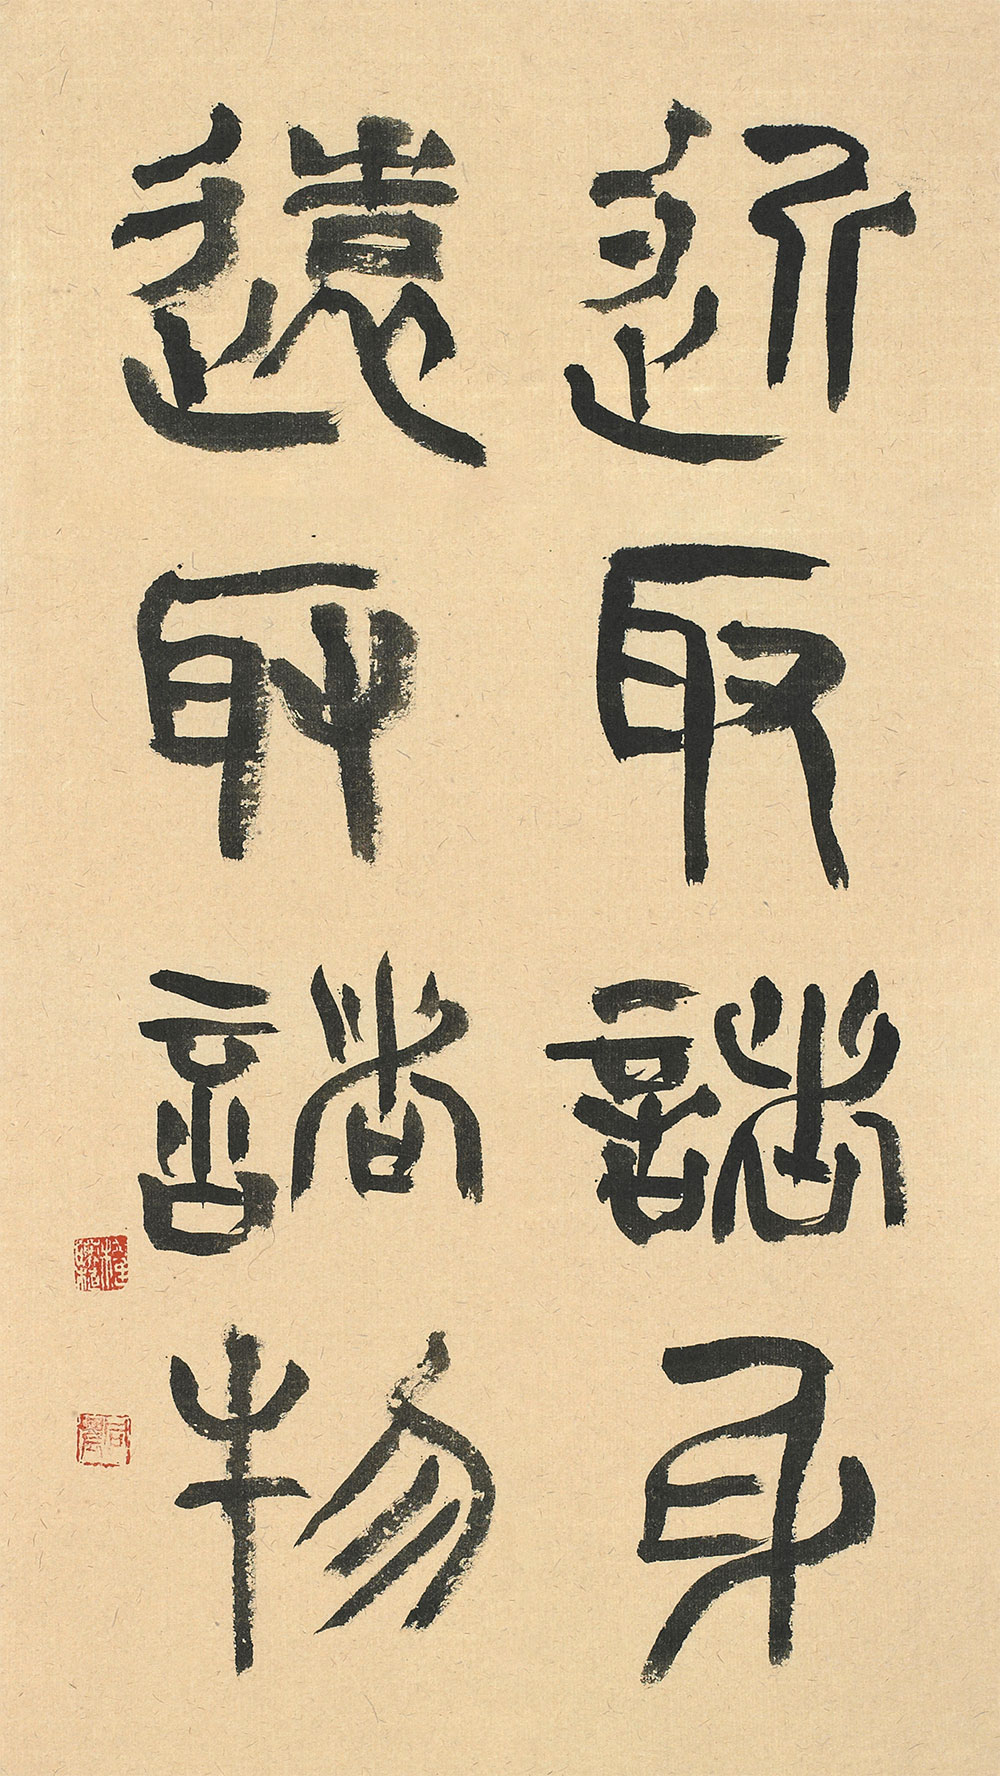 近取諸身
遠取諸物